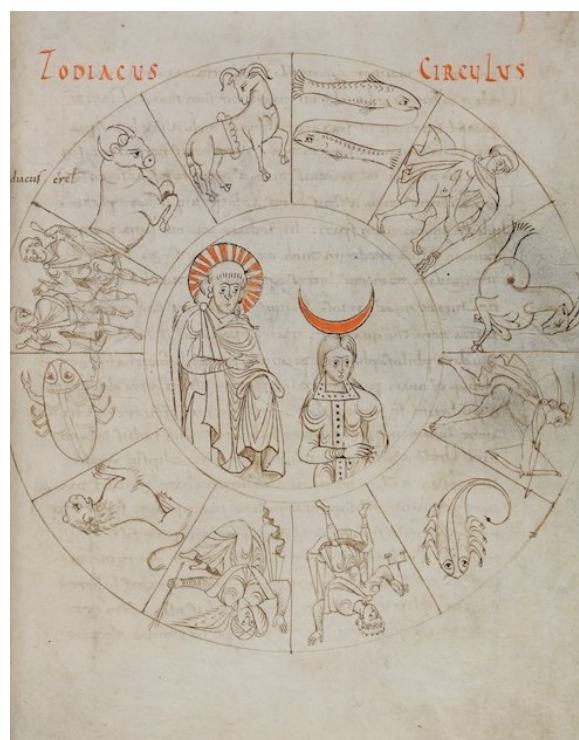 ZODIACUS CIRCULUS
diacus eret